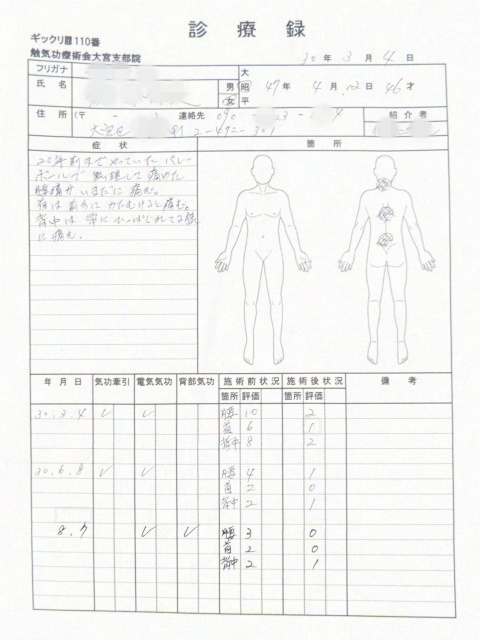 診療録
ギックリ腰110番
触気功療術会大宮支部院
30年 3月 4日
フリガナ 大
氏名 男 昭 47年 4月 12日 46才
女 平
住所 (〒 - ) 連絡先 090 紹介者
2-492-301
症状 箇所
20年前までやっていたバレー
ボールで 無理して痛めた
腰痛がいまだに痛む。
首は前後にかたむけると痛む。
背中は常にひっぱられてる様
に痛む。
年月日 気功牽引 電気気功 背部気功 施術前状況 施術後状況 備考
箇所 評価 箇所 評価
30.3.4 ✓ ✓ 腰 10 2
首 6 1
背中 8 2
30.6.8 ✓ ✓ 腰 4 1
首 2 0
背中 2 1
8.7 ✓ ✓ 腰 3 0
首 2 0
背中 2 1